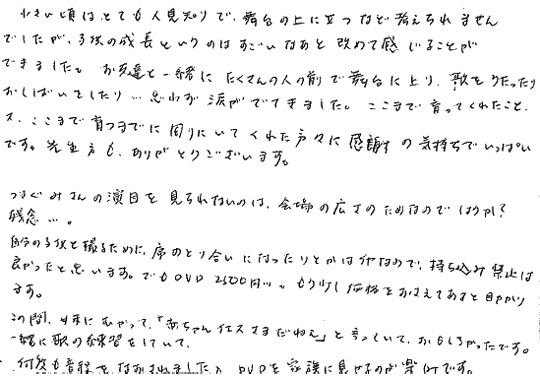 小さい頃はとても人見知りで、舞台の上に立つなど考えられません
でしたが、子供の成長というのはすごいなあと改めて感じることが
できました。お友達と一緒にたくさんの人の前で舞台に上り、歌をうたったり
おしばいをしたり…思わず涙がでてきました。ここまで育ってくれたこと、
又、ここまで育つまでに周りにいてくれた方々に感謝の気持ちでいっぱい
です。先生方も、ありがとうございます。
つまぐみさんの演目を見られないのは、会場の広さのためなのでしょうか?
残念…。
自分の子供を撮るために、席のとり合いになったりとかはイヤなので、持ち込み禁止は
良かったと思います。でもDVD 2500円…。もう少し価格をおさえてあると助かり
ます。
この間、の「赤ちゃんイエスさまだねぇ」と言っていて、おもしろかったです。
一緒に歌の練習をしていて、
何度も音程をなおされました DVDを家族に見せるのが楽しみです。